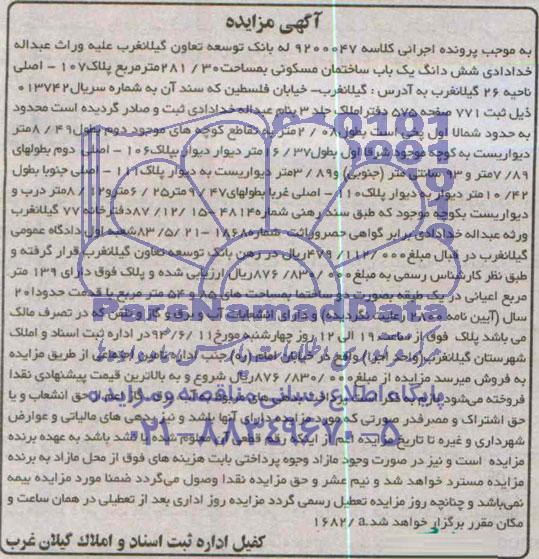 آگهی مزایده
به موجب پرونده اجرائی کلاسه ۹۲۰۰۰۴۷ له بانک توسعه تعاون گیلانغرب علیه وراث عبداله
خدادادی شش دانگ یک باب ساختمان مسکونی بمساحت ۲۸۱/۳۰ مترمربع پلاک ۱۰۷- اصلی
ناحیه ۲۶ گیلانغرب به آدرس : گیلانغرب- خیابان فلسطین که سند آن به شماره سریال ۰۱۳۷۴۲
ذیل ثبت ۷۷۱ صفحه ۵۷۵ دفتر املاک جلد ۳ بنام عبداله خدادادی ثبت و صادر گردیده است محدود
به حدود شمالا اول پخی است بطول ۲/۰۸ متر به تقاطع کوچه های موجود دوم بطول ۸/۴۹ متر
دیواریست به کوچه موجود شرقا اول بطول ۱۶/۳۷ متر دیوار دیوار بپلاک ۱۰۶- اصلی دوم بطولهای
۷/۸۹ متر و ۹۳ سانتی متر (جنوبی) و ۳/۸۹ متر دیواریست به دیوار پلاک ۱۱۱- اصلی جنوبا بطول
۱۰/۴۲ متر دیوار به دیوار پلاک ۱۱۰- اصلی غربا بطولهای ۹/۴۷ متر ۶/۲۵ متر و ۸/۱۲ متر درب و
دیواریست بکوچه موجود که طبق سند رهنی شماره ۴۸۱۴- ۸۷/۱۲/۱۵ دفترخانه ۷۷ گیلانغرب
ورثه عبداله خدادادی برابر گواهی حصروراثت شماره ۱۸۶۸- ۸۳/۵/۲۱ شعبه اول دادگاه عمومی
گیلانغرب در قبال مبلغ ۴۷۹/۱۱۲/۰۰۰ ریال در رهن بانک توسعه تعاون گیلانغرب قرار گرفته و
طبق نظر کارشناس رسمی به مبلغ ۸۷۶/۸۳۰/۰۰۰ ریال ارزیابی شده و پلاک فوق دارای ۱۳۹ متر
مربع اعیانی در یک طبقه بصورت دو ساختما بمساحت های ۸۵ و ۵۴ متر مربع با قدمت حدودا ۲۰
سال (آیین نامه ۲۸۰۰ رعایت نگردیده) و دارای انشعابات آب و برق و گاز و تلفن که در تصرف مالک
می باشد پلاک فوق از ساعت ۱۹ الی ۱۲ روز چهارشنبه مورخ ۹۴/۶/۱۱ در اداره ثبت اسناد و املاک
شهرستان گیلانغرب (واحد اجرا) واقع در خیابان امام (ره) جنب اداره تامین اجتماعی از طریق مزایده
به فروش میرسد مزایده از مبلغ ۸۷۶/۸۳۰/۰۰۰ ریال شروع و به بالاترین قیمت پیشنهادی نقدا
فروخته می‌شود بدهی های مربوط به آب، برق، گاز اعم از حق انشعاب و یا
حق اشتراک و مصرف در صورتی که مورد مزایده دارای آنها باشد و نیز بدهی های مالیاتی و عوارض
شهرداری و غیره تا تاریخ مزایده اعم از اینکه رقم قطعی آن معلوم شده یا نشد باشد به عهده برنده
مزایده است و نیز در صورت وجود مازاد وجوه پرداختی بابت هزینه های فوق از محل مازاد به برنده
مزایده مسترد خواهد شد و نیم عشر و حق مزایده نقدا وصول می‌گردد ضمنا مورد مزایده بیمه
نمی‌باشد و چنانچه روز مزایده تعطیل رسمی گردد مزایده روز اداری بعد از تعطیلی در همان ساعت و
مکان مقرر برگزار خواهد شد. a/۱۶۸۲
کفیل اداره ثبت اسناد و املاک گیلان غرب
پایگاه اطلاع رسانی مناقصه و مزایده
۰۲۱-۸۸۳۴۹۶۷۰-۵